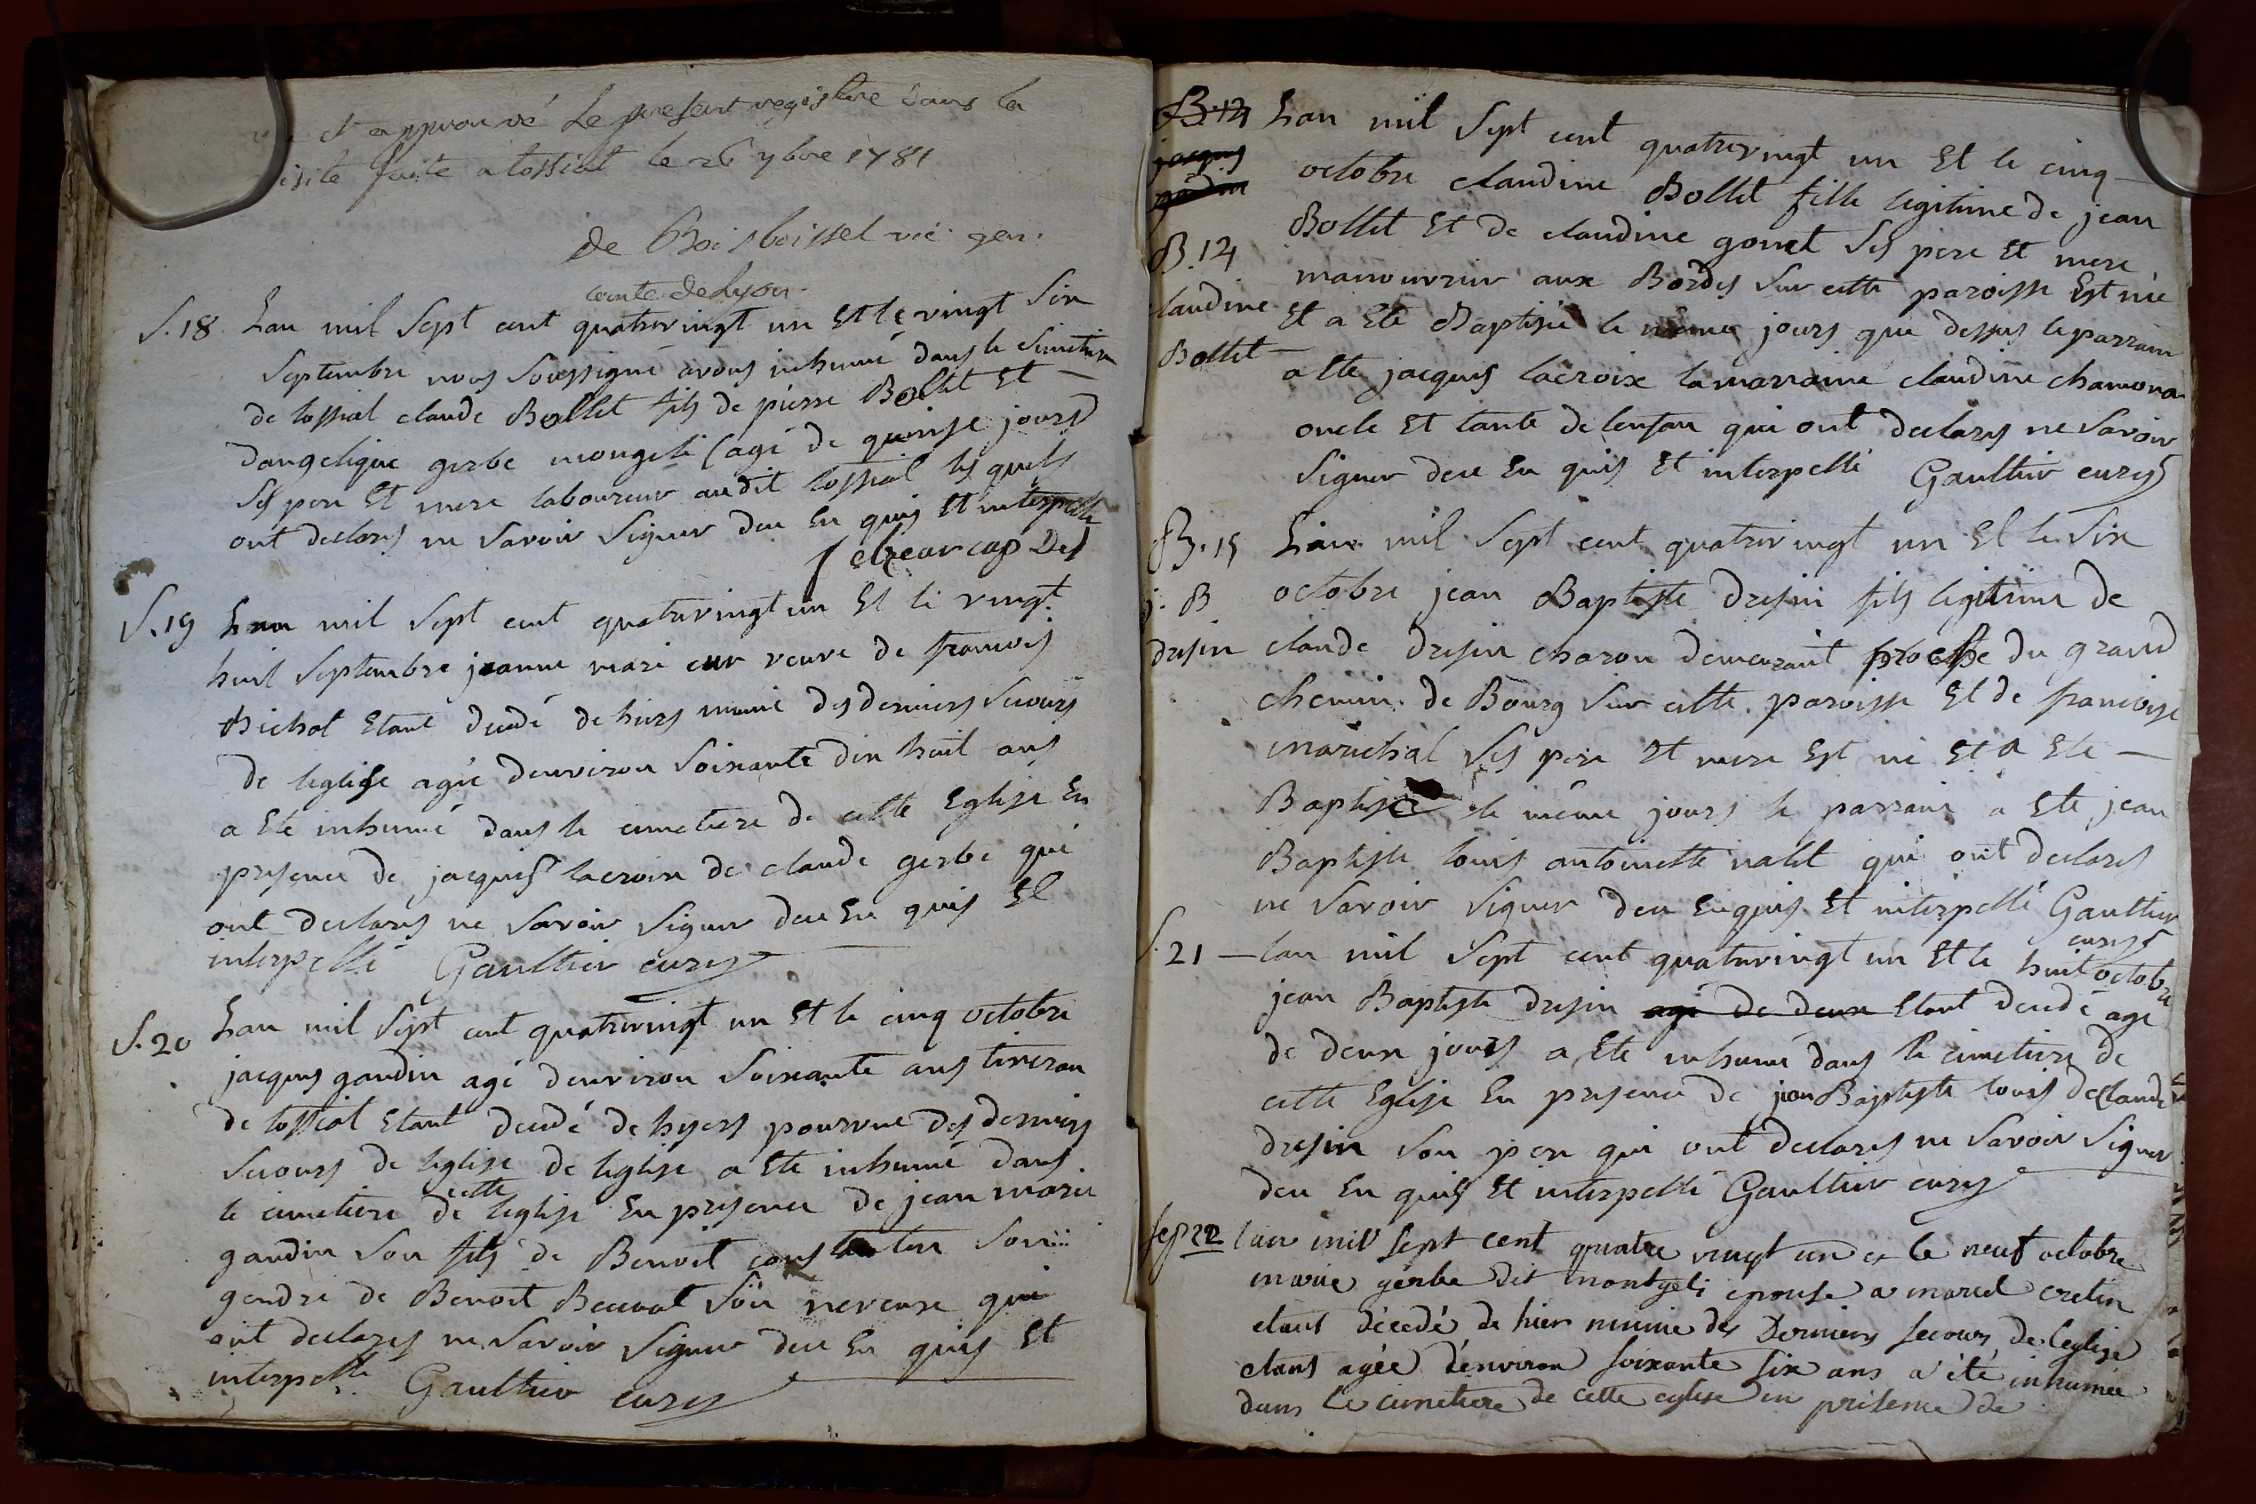 et approuvé Le present registre dans la
visite faite a tossiat le 26 7bre 1781
de Boisboissel vic. gen.
comte de Lyon
S. 18 Lan mil Sept cent quatrevingt un Et le vingt Six
Septembre nous Soussigné avons inhumé dans le Simetiere
de tossiat claude Bollet fils de pierre Bollet Et
dangelique gerbe mongeli (agé de quinse jours)
Ses pere Et mere laboureur audit tossiat lesquels
ont declares ne Savoir Signer deu En quis Et interpelle
S. 19 Lan mil Sept cent quatrevingt un Et le vingt
huit Septembre jeanne mari veuve de francois
Bichat Etant decedé dehiers munie des derniers Secours
de leglise agée denviron Soixante dix huit ans
a Ete inhumé dans le cimetiere de cette Eglise En
presence de jacques lacroix de claude gerbe qui
ont declares ne Savoir Signer deu En quis Et
interpellé Gaulthier curez
S. 20 Lan mil Sept cent quatrevingt un Et le cinq octobre
jacques gaudin agé denviron Soixante ans tixeran
de tossiat Etant decedé dehyers pourvue des derniers
Secours de leglise de leglise a Ete inhumé dans
le cimetiere de cette leglise En presence de jean marie
gaudin Son fils de Benoit Son
gendre de Benoit Beccvat Son neveux qui
ont declares ne Savoir Signer deu En quis Et
interpellé Gaulthier curez
B. 14
jacques
gaudin
B. 14
claudine
Bollet
Lan mil Sept cent quatrevingt un Et le cinq
octobre claudine Bollet fille legitime de jean
Bollet Et de claudine gonet Ses pere Et mere
manouvrier aux Bordes Sur cette paroisse Est née
Et a Ete Baptisée le même jours que dessus le parrain
a Ete jacques lacroix la marraine claudine chamona
oncle Et tante de lenfan qui ont declares ne Savoir
Signer deu En quis Et interpellé Gaulthier curez
B. 15
j. B
dresin
Lan mil Sept cent quatrevingt un Et le Six
octobre jean Baptiste dresin fils legitime de
claude dresin charon demeurant proche du grand
chemin de Bourg Sur cette paroisse Et de francoise
marechal Ses pere Et mere Est né Et a Ete
Baptisé le même jours le parrain a Ete jean
Baptiste louis antoinette valet qui ont declares
ne Savoir Signer deu En quis Et interpellé Gaulthier
curez
S. 21 lan mil Sept cent quatrevingt un Et le huit octobre
jean Baptiste dresin agé de deux Etant decedé agé
de deux jours a Ete inhumé dans le cimetiere de
cette Eglise En presence de jean Baptiste louis de claude
dresin Son pere qui ont declares ne Savoir Signer
deu En quis Et interpellé Gaulthier curez
Sep 22 lan mil sept cent quatre vingt un et le neuf octobre
marie gerbe dit montgeli epouse a marcel cretin
etant décedé de hier munie des Derniers secours de leglise
etant agée d'environ soixante six ans a été inhumée
dans le cimetiere de cette eglise en présence de